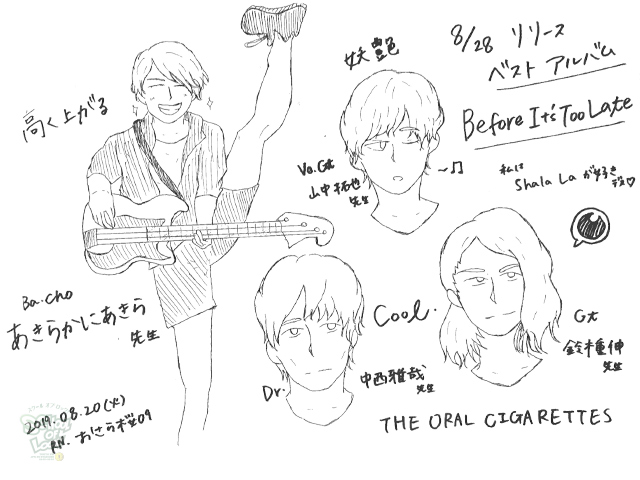 8/28 リリース
ベスト アルバム
Before It's Too Late
私は
Shala La が好き
です♡
妖艶
高く上がる
Vo.Gt
山中拓也
先生
~♫
Ba.cho
あきらかにあきら
先生
Cool.
Gt
鈴木重伸
先生
Dr.
中西雅哉
先生
2019.08.20(火)
RN. おさら桜09
THE ORAL CIGARETTES